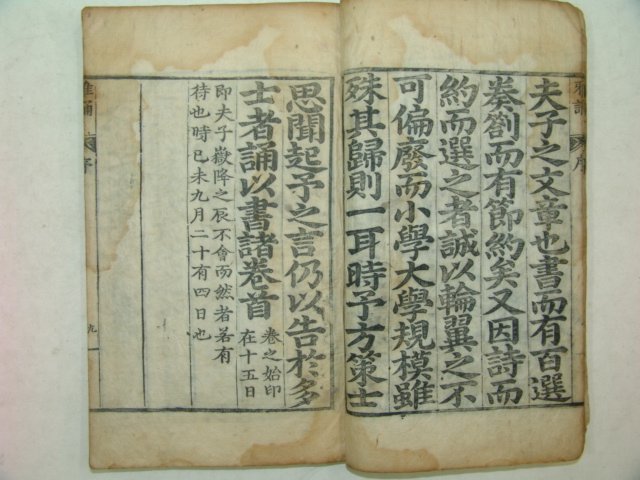 雅誦
序
夫子之文章也書而有百選
奏劄而有節約矣又因詩而
約而選之者誠以輪翼之不
可偏廢而小學大學規模雖
殊其歸則一耳時予方策士
思聞起予之言仍以告於多
士者誦以書諸卷首
卷之始印
在十五日
即夫子嶽降之辰不會而然者若有
待也時己未九月二十有四日也
雅誦
序
九